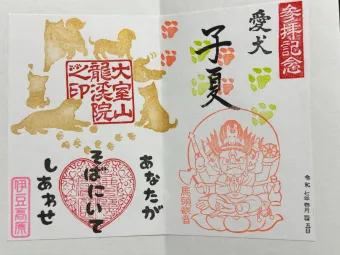 参拝記念
愛犬
子夏
馬頭観音
令和七年四月五日
大室山
龍渓院
之印
あなたが
そばにいて
しあわせ
伊豆高原